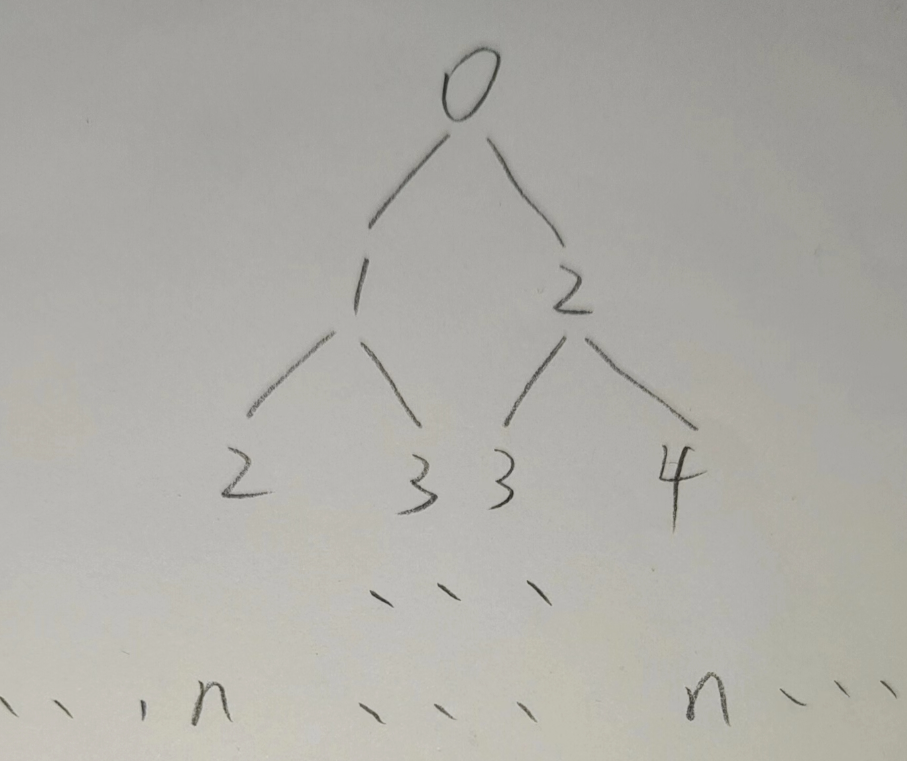 0
1 2
2 3 3 4
...
... n ... n ...